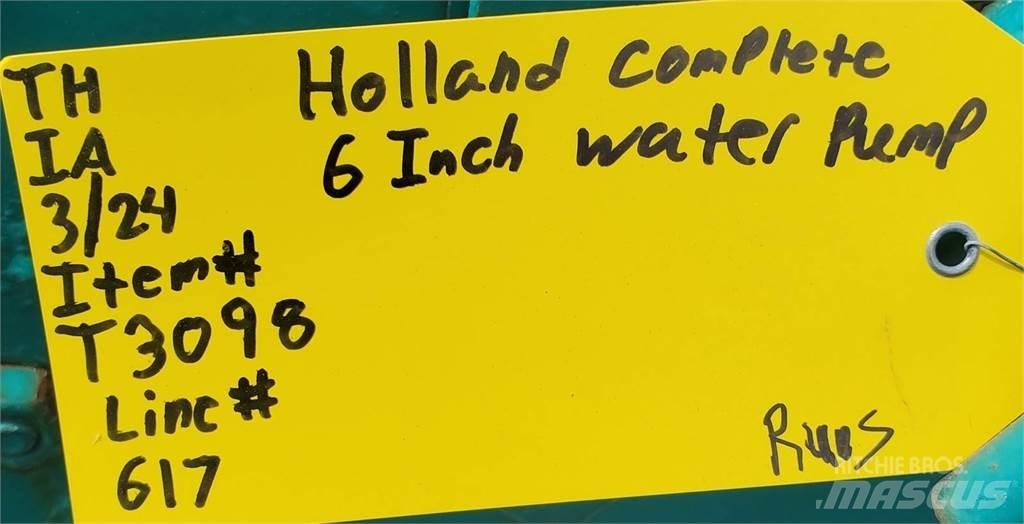 TH
IA
3/24
Item#
T3098
Line#
617
Holland complete
6 Inch water Pump
Runs
RITCHIE BROS.
MASCUS